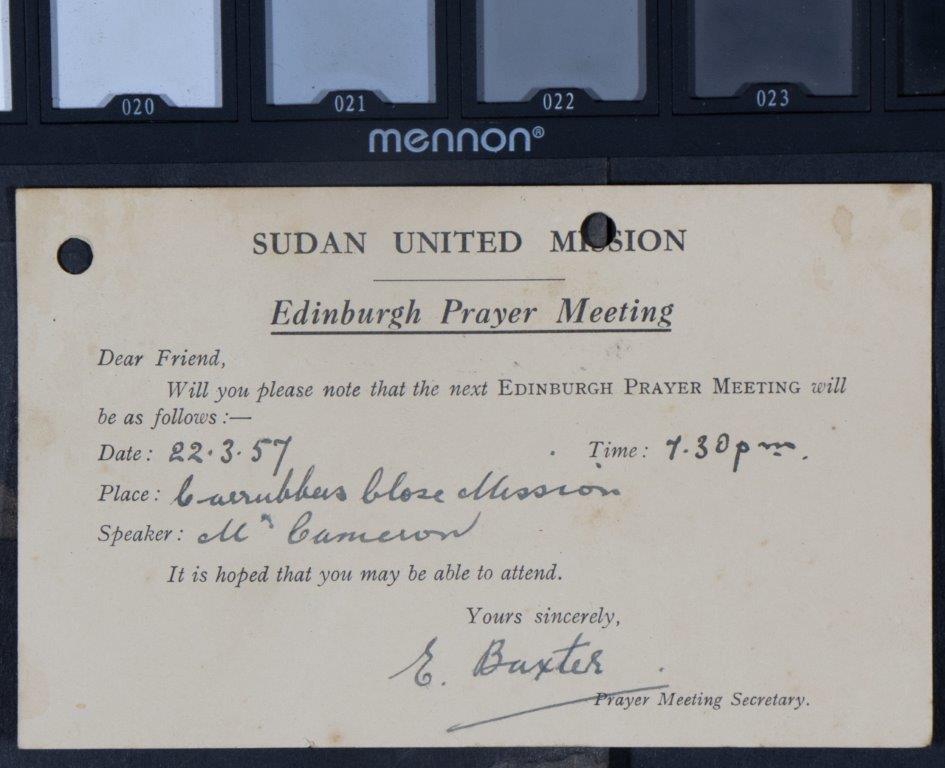 020 021 022 023
mennon®
SUDAN UNITED MISSION
Edinburgh Prayer Meeting
Dear Friend,
Will you please note that the next EDINBURGH PRAYER MEETING will
be as follows :—
Date : 22.3.57 Time : 7.30 pm.
Place : Carrubbers Close Mission
Speaker : Mr Cameron
It is hoped that you may be able to attend.
Yours sincerely,
E. Baxter
Prayer Meeting Secretary.